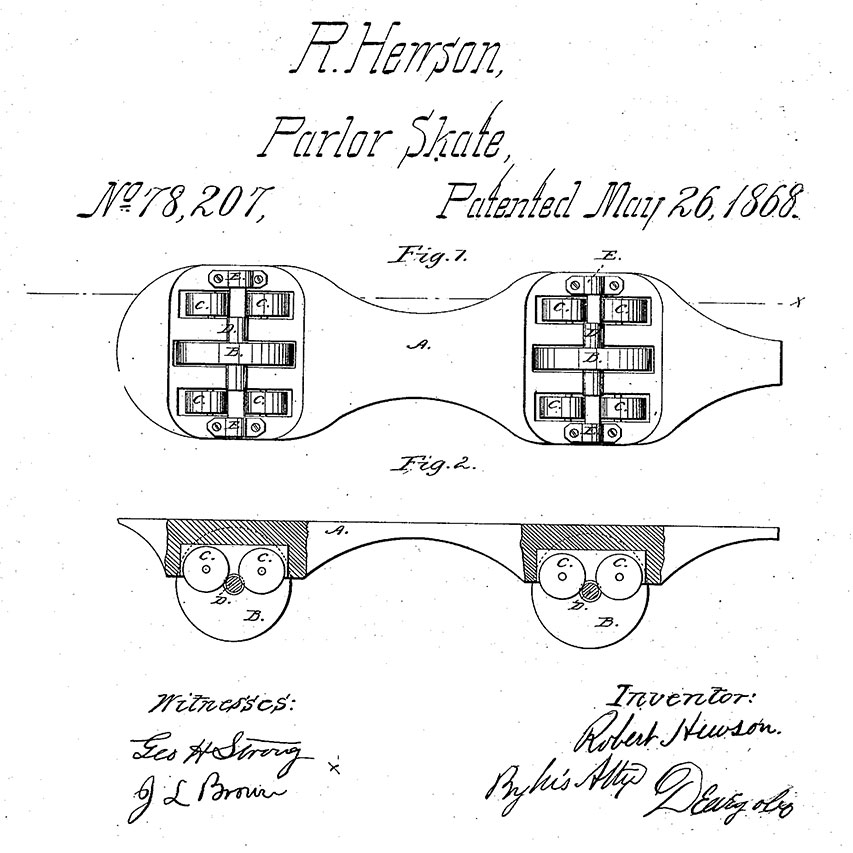 R. Hewson,
Parlor Skate,
No. 78,207, Patented May 26, 1868.
Fig. 1.
E.
E.
C. C. C. C.
D. D.
B. A. B. x
C. C. C. C.
E. E.
Fig. 2.
A.
C. C. C. C.
D. D.
B. B.
Witnesses: Inventor:
Geo H Strong Robert Hewson.
J L Brown x By his Atty